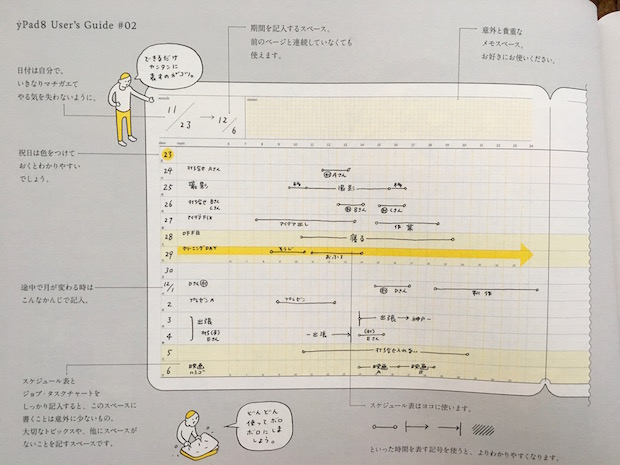 ÿPad8 User's Guide #02
期間を記入するスペース、
前のページと連続していなくても
使えます。
意外と貴重な
メモスペース。
お好きにお使いください。
できるだけ
カンタンに
表すのがコツ。
日付は自分で、
いきなりマチガエて
やる気を失わないように。
11/23 → 12/6
祝日は色をつけて
おくとわかりやすい
でしょう。
23
24 打ち合せ Aさん
Aさん
25 撮影
撮影
26 打ち合せ Bさん
Cさん
Bさん
Cさん
27 アイデアFIX
アイデア出し
作業
28 OFF日
寝る
29 クリーニングDAY
そうじ
おふろ
30
12/1 Dさん
Dさん
制作
2 プレゼンA
プレゼン
3 出張
出張 → 神戸
4
出張
Eさん
5
6 映画
ハシゴ
映画A
映画B
途中で月が変わる時は
こんなかんじで記入。
スケジュール表と
ジョブ・タスクチャートを
しっかり記入すると、このスペースに
書くことは意外に少ないもの。
大切なトピックスや、他にスペースが
ないことを記すスペースです。
どんどん
使ってボロ
ボロにしま
しょう。
スケジュール表はヨコに使います。
といった時間を表す記号を使うと、よりわかりやすくなります。